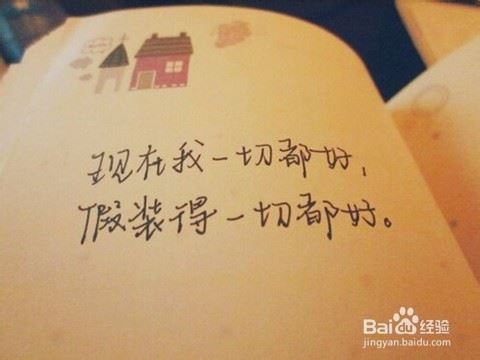 现在我一切都好，
假装得一切都好。
Baidu 经验
jingyan.baidu.com